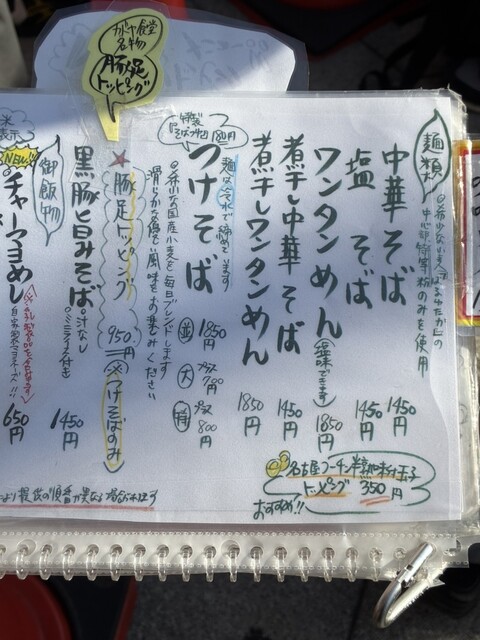 カドヤ食堂
名物
豚足
トッピング
麺類
◎希少な小麦ゆめちからの
中心部 特等粉のみを使用
中華そば 1450円
塩そば 1450円
ワンタンめん(塩味できます) 1850円
煮干し中華そば 1450円
煮干しワンタンめん 1850円
特製
そばつゆ 180円
つけそば
麺は冷水で締めています
並 1850円
大 プラス700円
特 プラス800円
国産小麦を毎日ブレンドします
滑らかな喉ごし風味をお楽しみください
★豚足トッピング 950円 ※つけそばのみ
黒豚旨みそば 汁なし
ミニライス付き
1450円
御飯物
NEW!
チャーマヨめし
650円
名古屋コーチン半熟味付玉子
トッピング 350円
おすすめ!!
より提供の順番が異なる場合があります